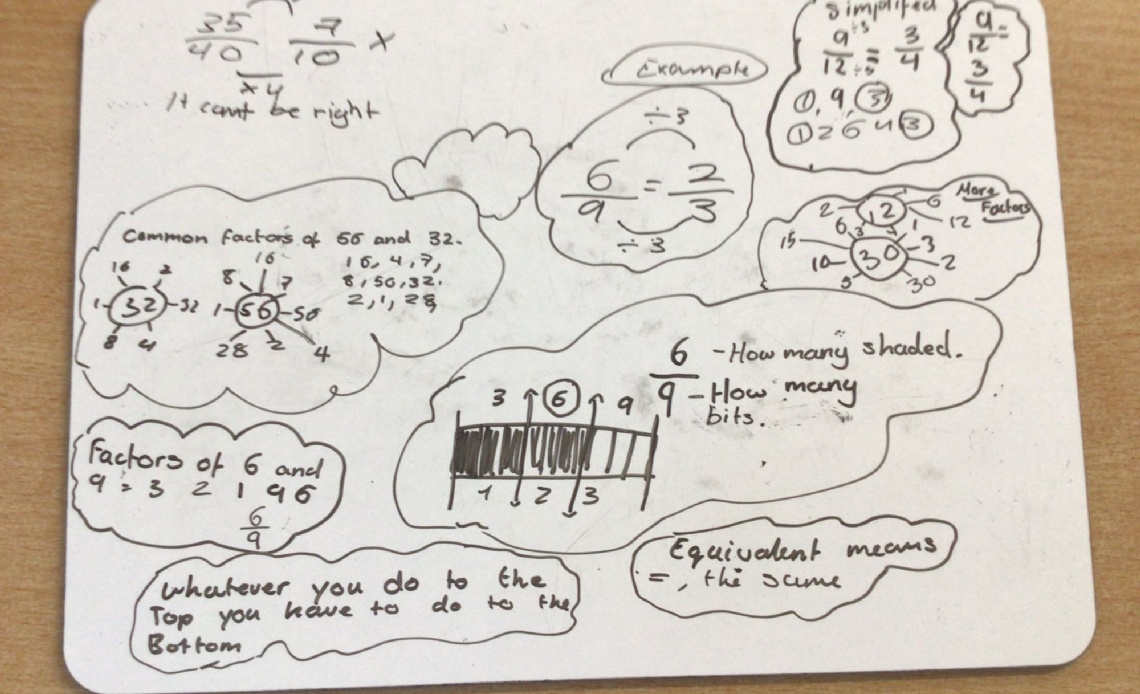 35 7
40 10 x
x 4
It cant be right
Example
÷3
6 = 2
9 3
÷3
Simplifed
9 ÷3 = 3
12 ÷3 4
1, 9, 3
1 2 6 4 3
9 =
12
3
4
More
Factors
12
2 6
6 3 4 1 12
30
15 3
10 2
5 30
Common factors of 56 and 32.
16, 4, 7,
8, 56, 32.
2, 1, 28,
16 2
1 32 32
8 4
16
8 7
1 56 56
28 2 4
6 - How many shaded.
9 - How many
bits.
3 6 9
1 2 3
Factors of 6 and
9 = 3 2 1 9 6
6
9
Whatever you do to the
Top you have to do to the
Bottom
Equivalent means
=, the same